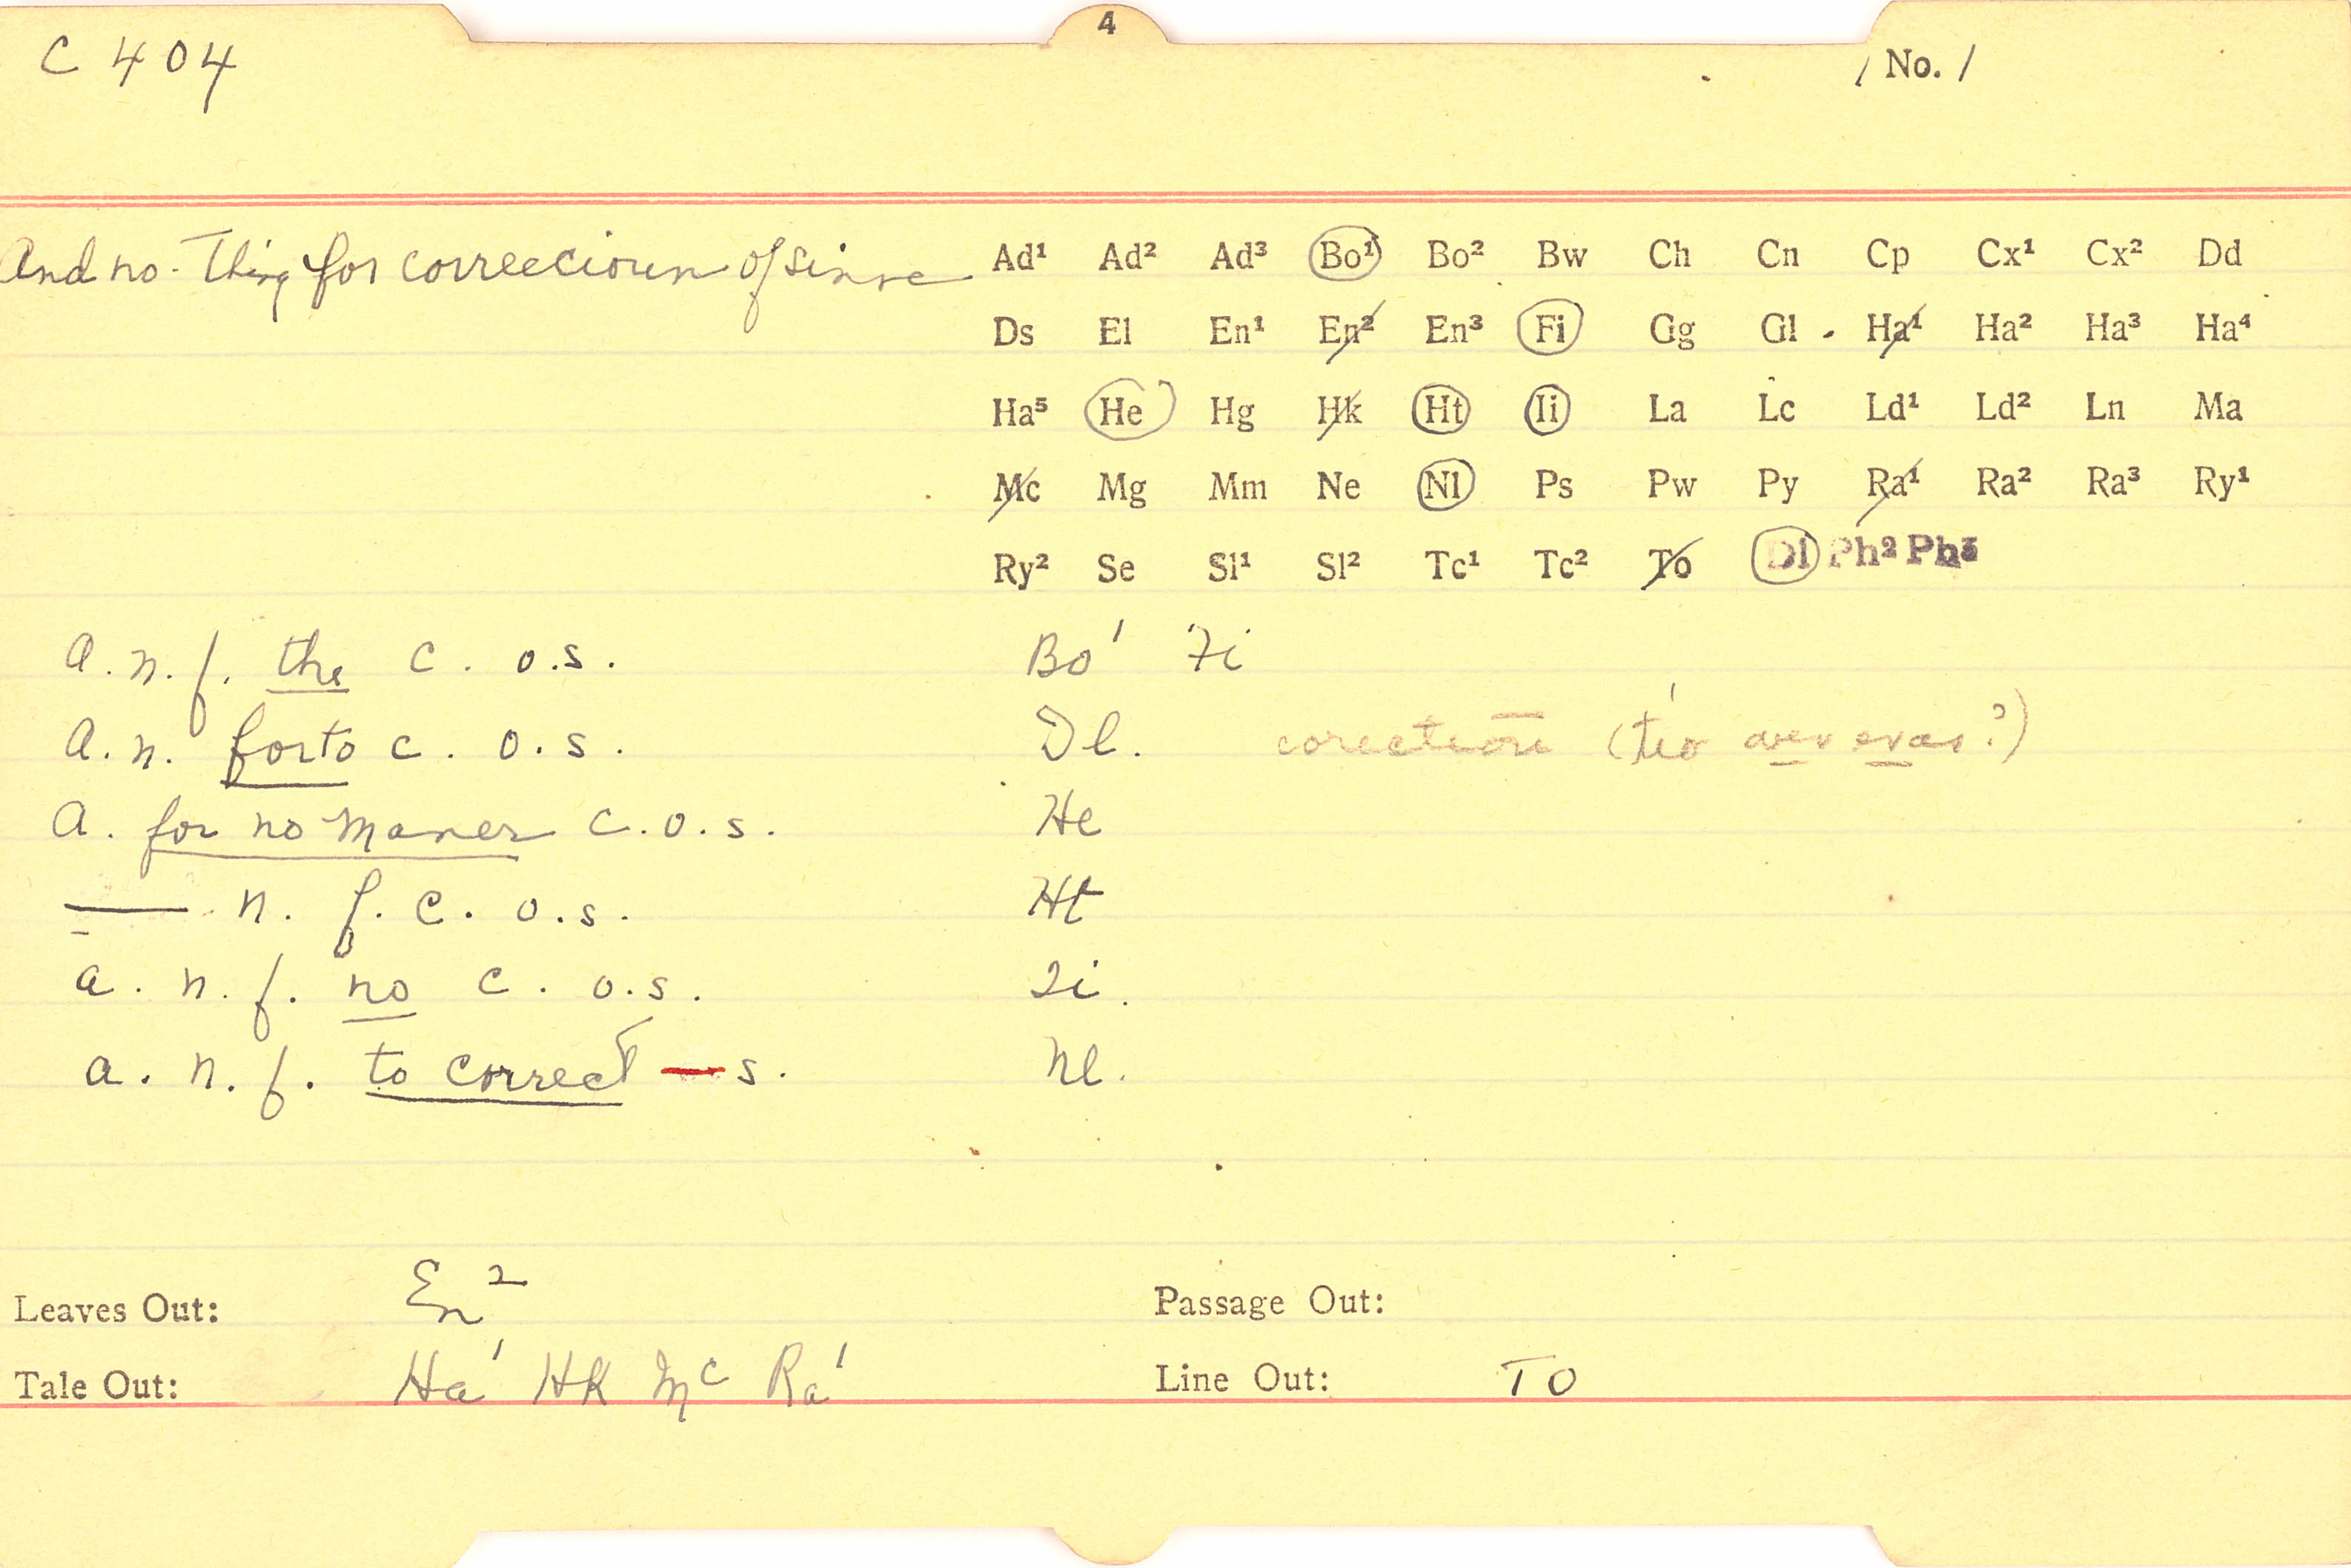 4
C 404
/ No. /
And no-thing for correccioun of sinne
Ad¹ Ad² Ad³ Bo¹ Bo² Bw Ch Cn Cp Cx¹ Cx² Dd
Ds El En¹ En² En³ Fi Gg Gl Ha¹ Ha² Ha³ Ha⁴
Ha⁵ He Hg Hk Ht Ii La Lc Ld¹ Ld² Ln Ma
Mc Mg Mm Ne Nl Ps Pw Py Ra¹ Ra² Ra³ Ry¹
Ry² Se Sl¹ Sl² Tc¹ Tc² To Dl Ph² Ph³
a. n. f. the c. o. s. Bo¹ Fi
a. n. forto c. o. s. Dl. corection
a. for no maner c. o. s. He
— n. f. c. o. s. Ht
a. n. f. no c. o. s. Ii.
a. n. f. to correct — s. Nl.
Leaves Out: En² Passage Out:
Tale Out: Ha¹ Hk Mc Ra¹ Line Out: To